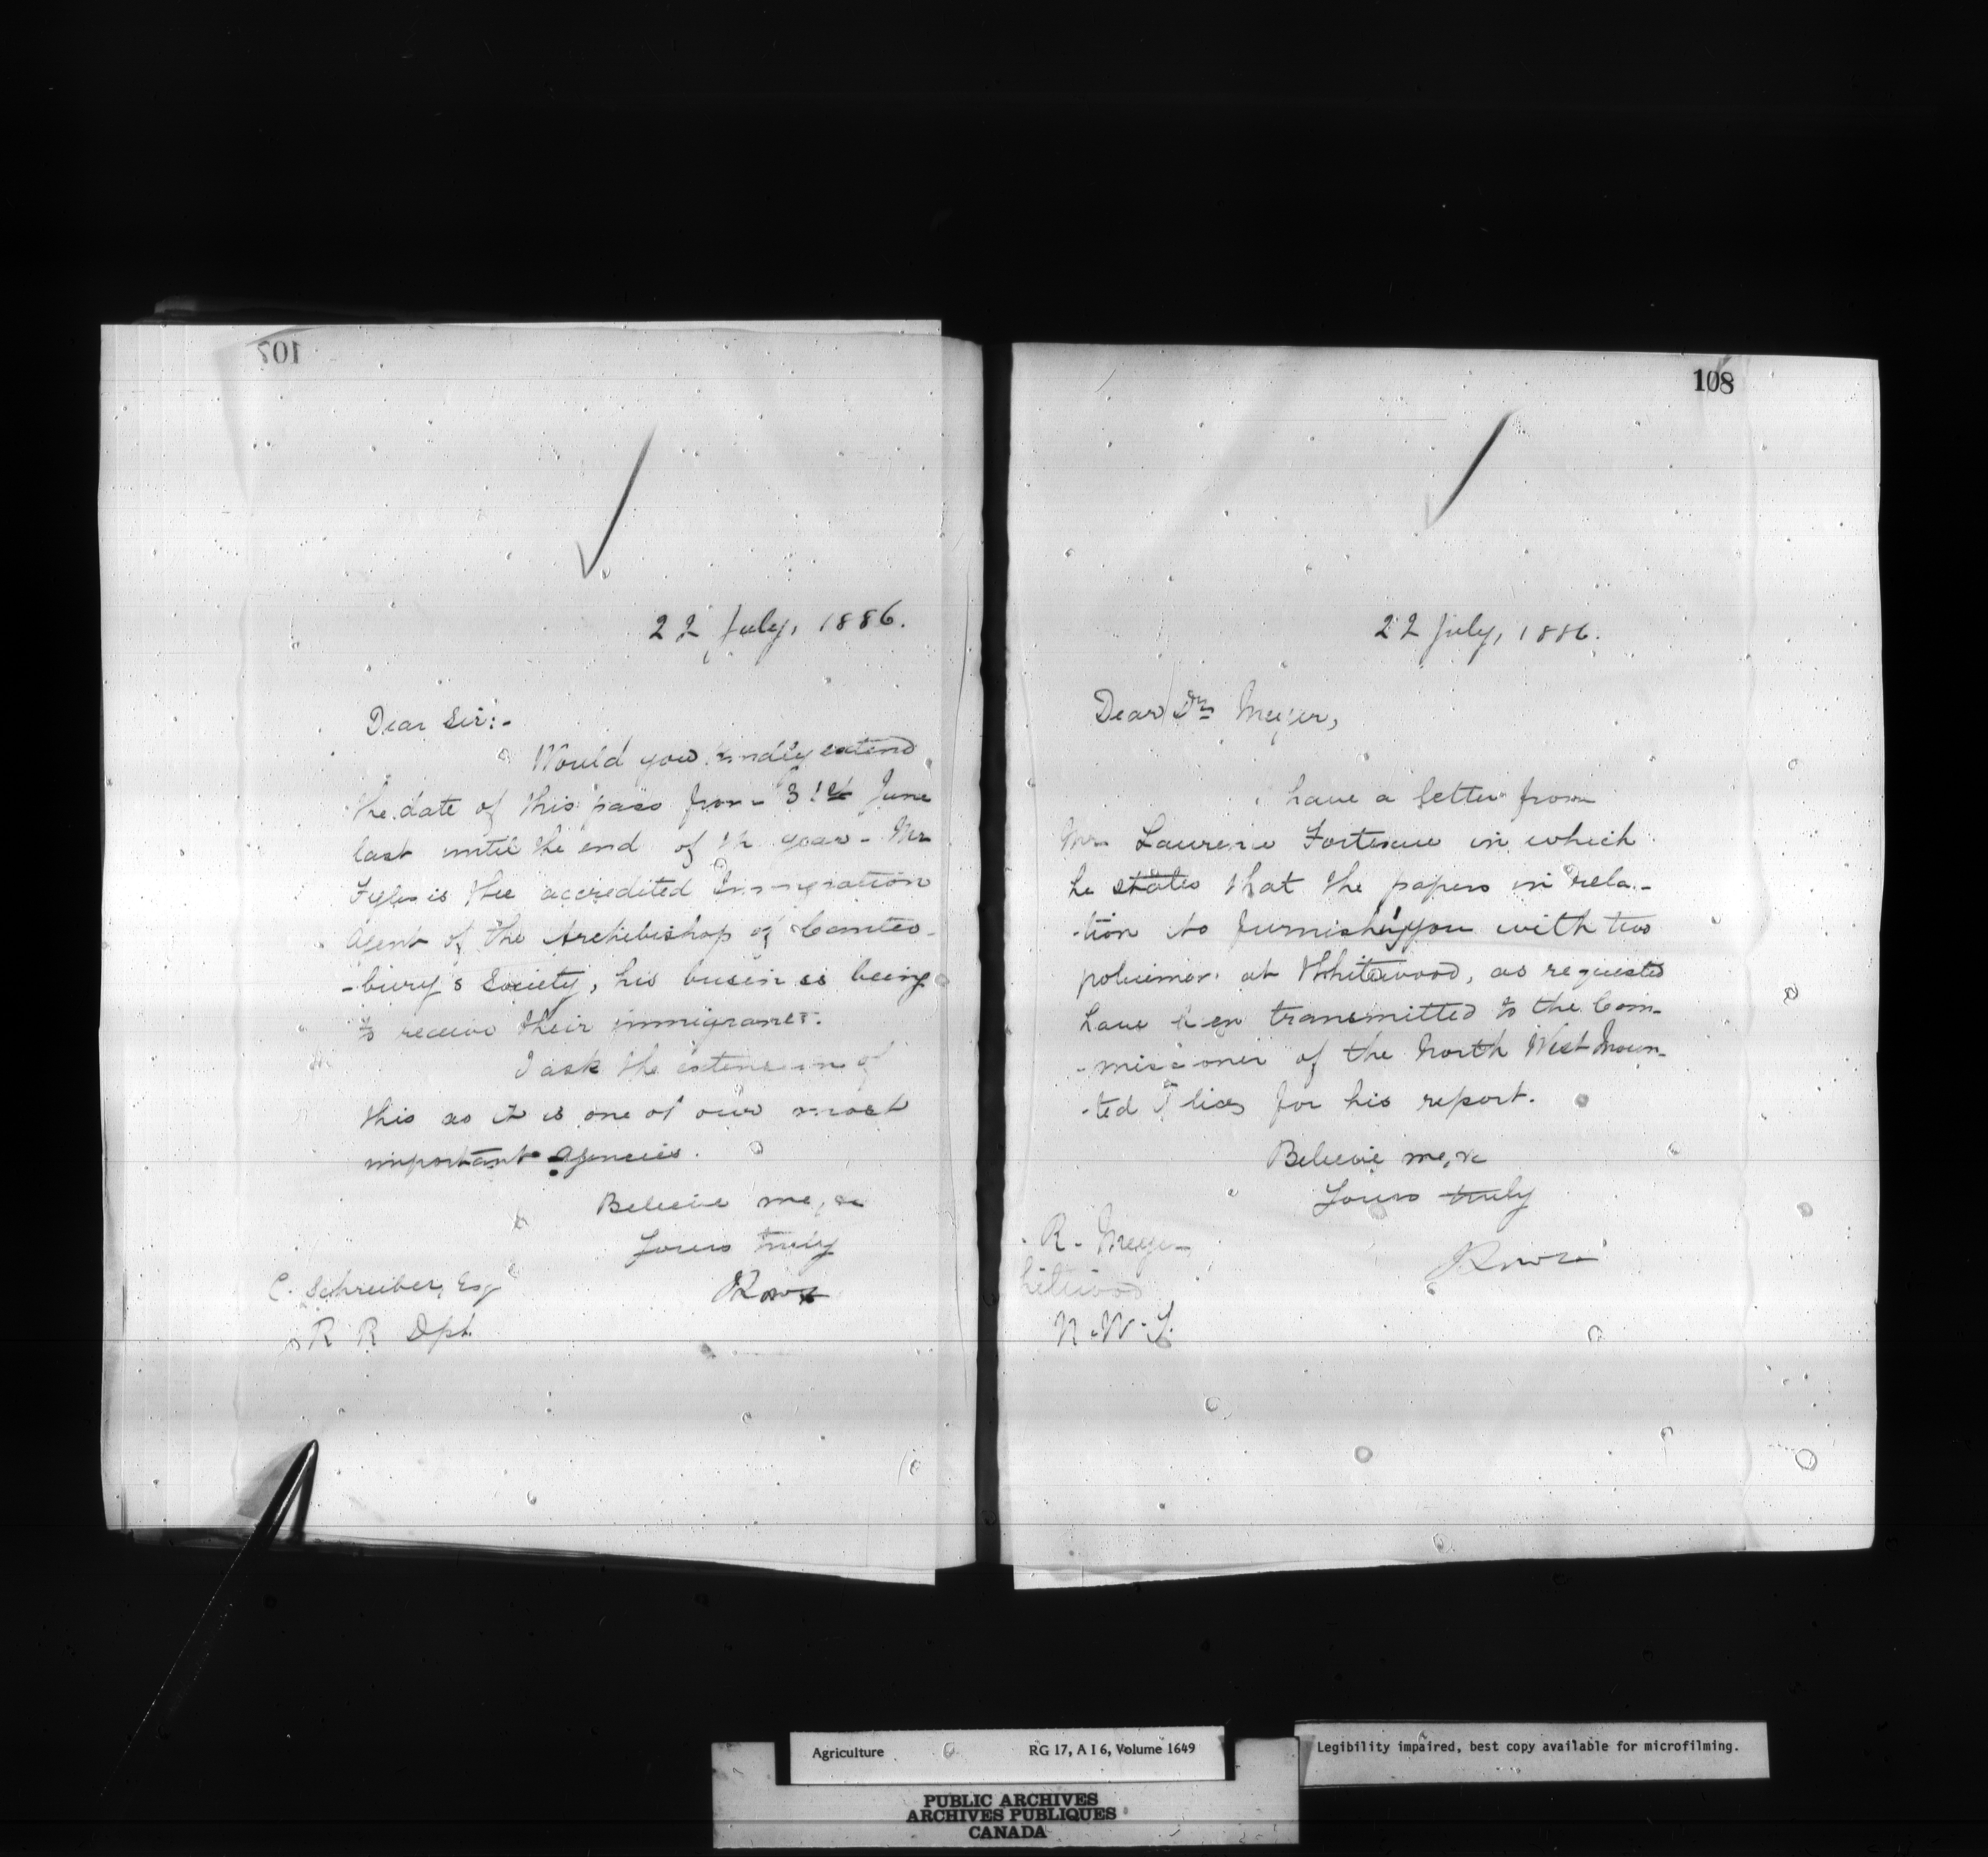 107
22 July, 1886.
Dear Sir:-
Would you kindly extend
the date of this pass from 31st June
last until the end of th year - Mr
Fyles is the accredited Immigration
Agent of the Archbishop of Canter-
-bury's Society, his business being
to receive their immigrants.
I ask the extension of
this as it is one of our most
important agencies.
Believe me, &c
Yours truly
C. Schreiber, Esq
R R Dpt.
108
22 July, 1886.
Dear Dr Meyer,
I have a letter from
Mr Laurence Fortescue in which
he states that the papers in rela-
-tion to furnishing you with two
policemen at Whitewood, as requested
have been transmitted to the Com-
-missioner of the North West Moun-
-ted Police for his report.
Believe me, &c
Yours truly
R. Meyer
hitewood
N.W.T.
Agriculture RG 17, A I 6, Volume 1649
Legibility impaired, best copy available for microfilming.
PUBLIC ARCHIVES
ARCHIVES PUBLIQUES
CANADA